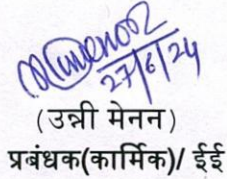 27/6/24
(उन्नी मेनन)
प्रबंधक(कार्मिक)/ ईई